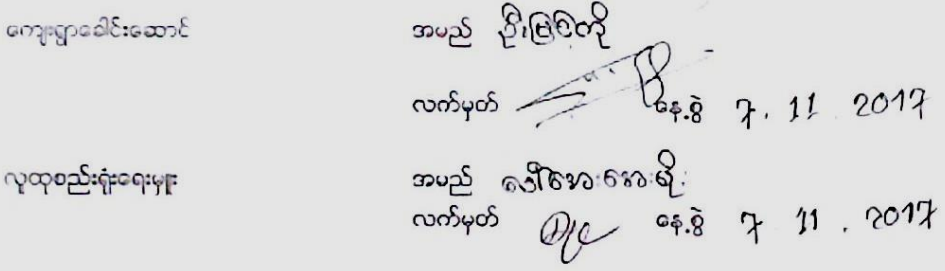 ကျေးရွာခေါင်းဆောင် အမည် ဦးမြင့်ကို
လက်မှတ် နေ့စွဲ 7. 11 2017
လူထုစည်းရုံးရေးမှူး အမည် ဒေါ်အေးအေးမိုး
လက်မှတ် နေ့စွဲ 7 11 . 2017